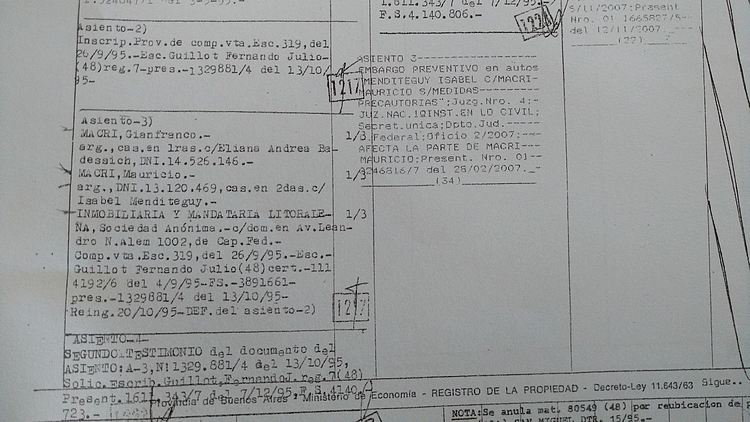 Asiento-2)
Inscrip.Prov.de comp.vta.Esc.319,del
26/9/95.-Esc.Guillot Fernando Julio-
(48)reg.7-pres.-1329881/4 del 13/10/
95-
1217
Asiento-3)
MACRI, Gianfranco.- 1/3
arg.,cas.en 1ras.c/Eliana Andrea Ba-
dessich,DNI.14.526.146.-
MACRI, Mauricio.- 1/3
arg.,DNI.13.120.469,cas.en 2das.c/
Isabel Menditeguy.-
INMOBILIARIA Y MANDATARIA LITORALE- 1/3
ÑA,Sociedad Anónima.-c/dom.en Av.Lean-
dro N.Alem 1002,de Cap.Fed.-
Comp.vta.Esc.319,del 26/9/95.-Esc.-
Guillot Fernando Julio(48)cert.-111
4192/6 del 4/9/95-FS.-3891661-
pres.-1329881/4 del 13/10/95-
Reing.20/10/95-DEF.del asiento-2)
1217
ASIENTO
SEGUNDO.TESTIMONIO del documento del
ASIENTO:A-3,Nº1329.881/4 del 13/10/95,
Solic.Escrib.Guillot,FernandoJ.reg.7(48)
Present.1611.343/7 del 7/12/95,F.S.4140.
723.-
1.611.343/7 del 7/12/95-
F.S.4.140.806.-
ASIENTO 3
EMBARGO PREVENTIVO en autos
MENDITEGUY ISABEL C/MACRI-
MAURICIO S/MEDIDAS
PRECAUTORIAS";Juzg.Nro. 4:-
JUZ.NAC.1QINST.EN LO CIVIL;
Secret.unica;Dpto.Jud.
Federal;Oficio 2/2007;
AFECTA LA PARTE DE MACRI
MAURICIO;Present. Nro. 01
0246816/7 del 28/02/2007.
(34)
5/11/2007;Present
Nro. 01 1665827/5
del 12/11/2007.
(22)
Provincia de Buenos Aires Ministerio de Economía - REGISTRO DE LA PROPIEDAD - Decreto-Ley 11.643/63 Sigue..
NOTA:Se anula mat. 80549 (48) por reubicacion de
SAN MIGUEL. DTR. 15/95.-